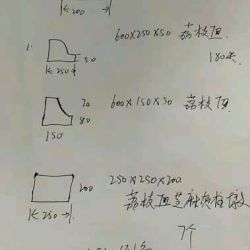 K 250
1.
600×250×50 荔枝面
180米
50
K 250
70
80
600×150×50 荔枝面
150
200
250×250×200
荔枝面芝麻灰柱墩
K 250
7个